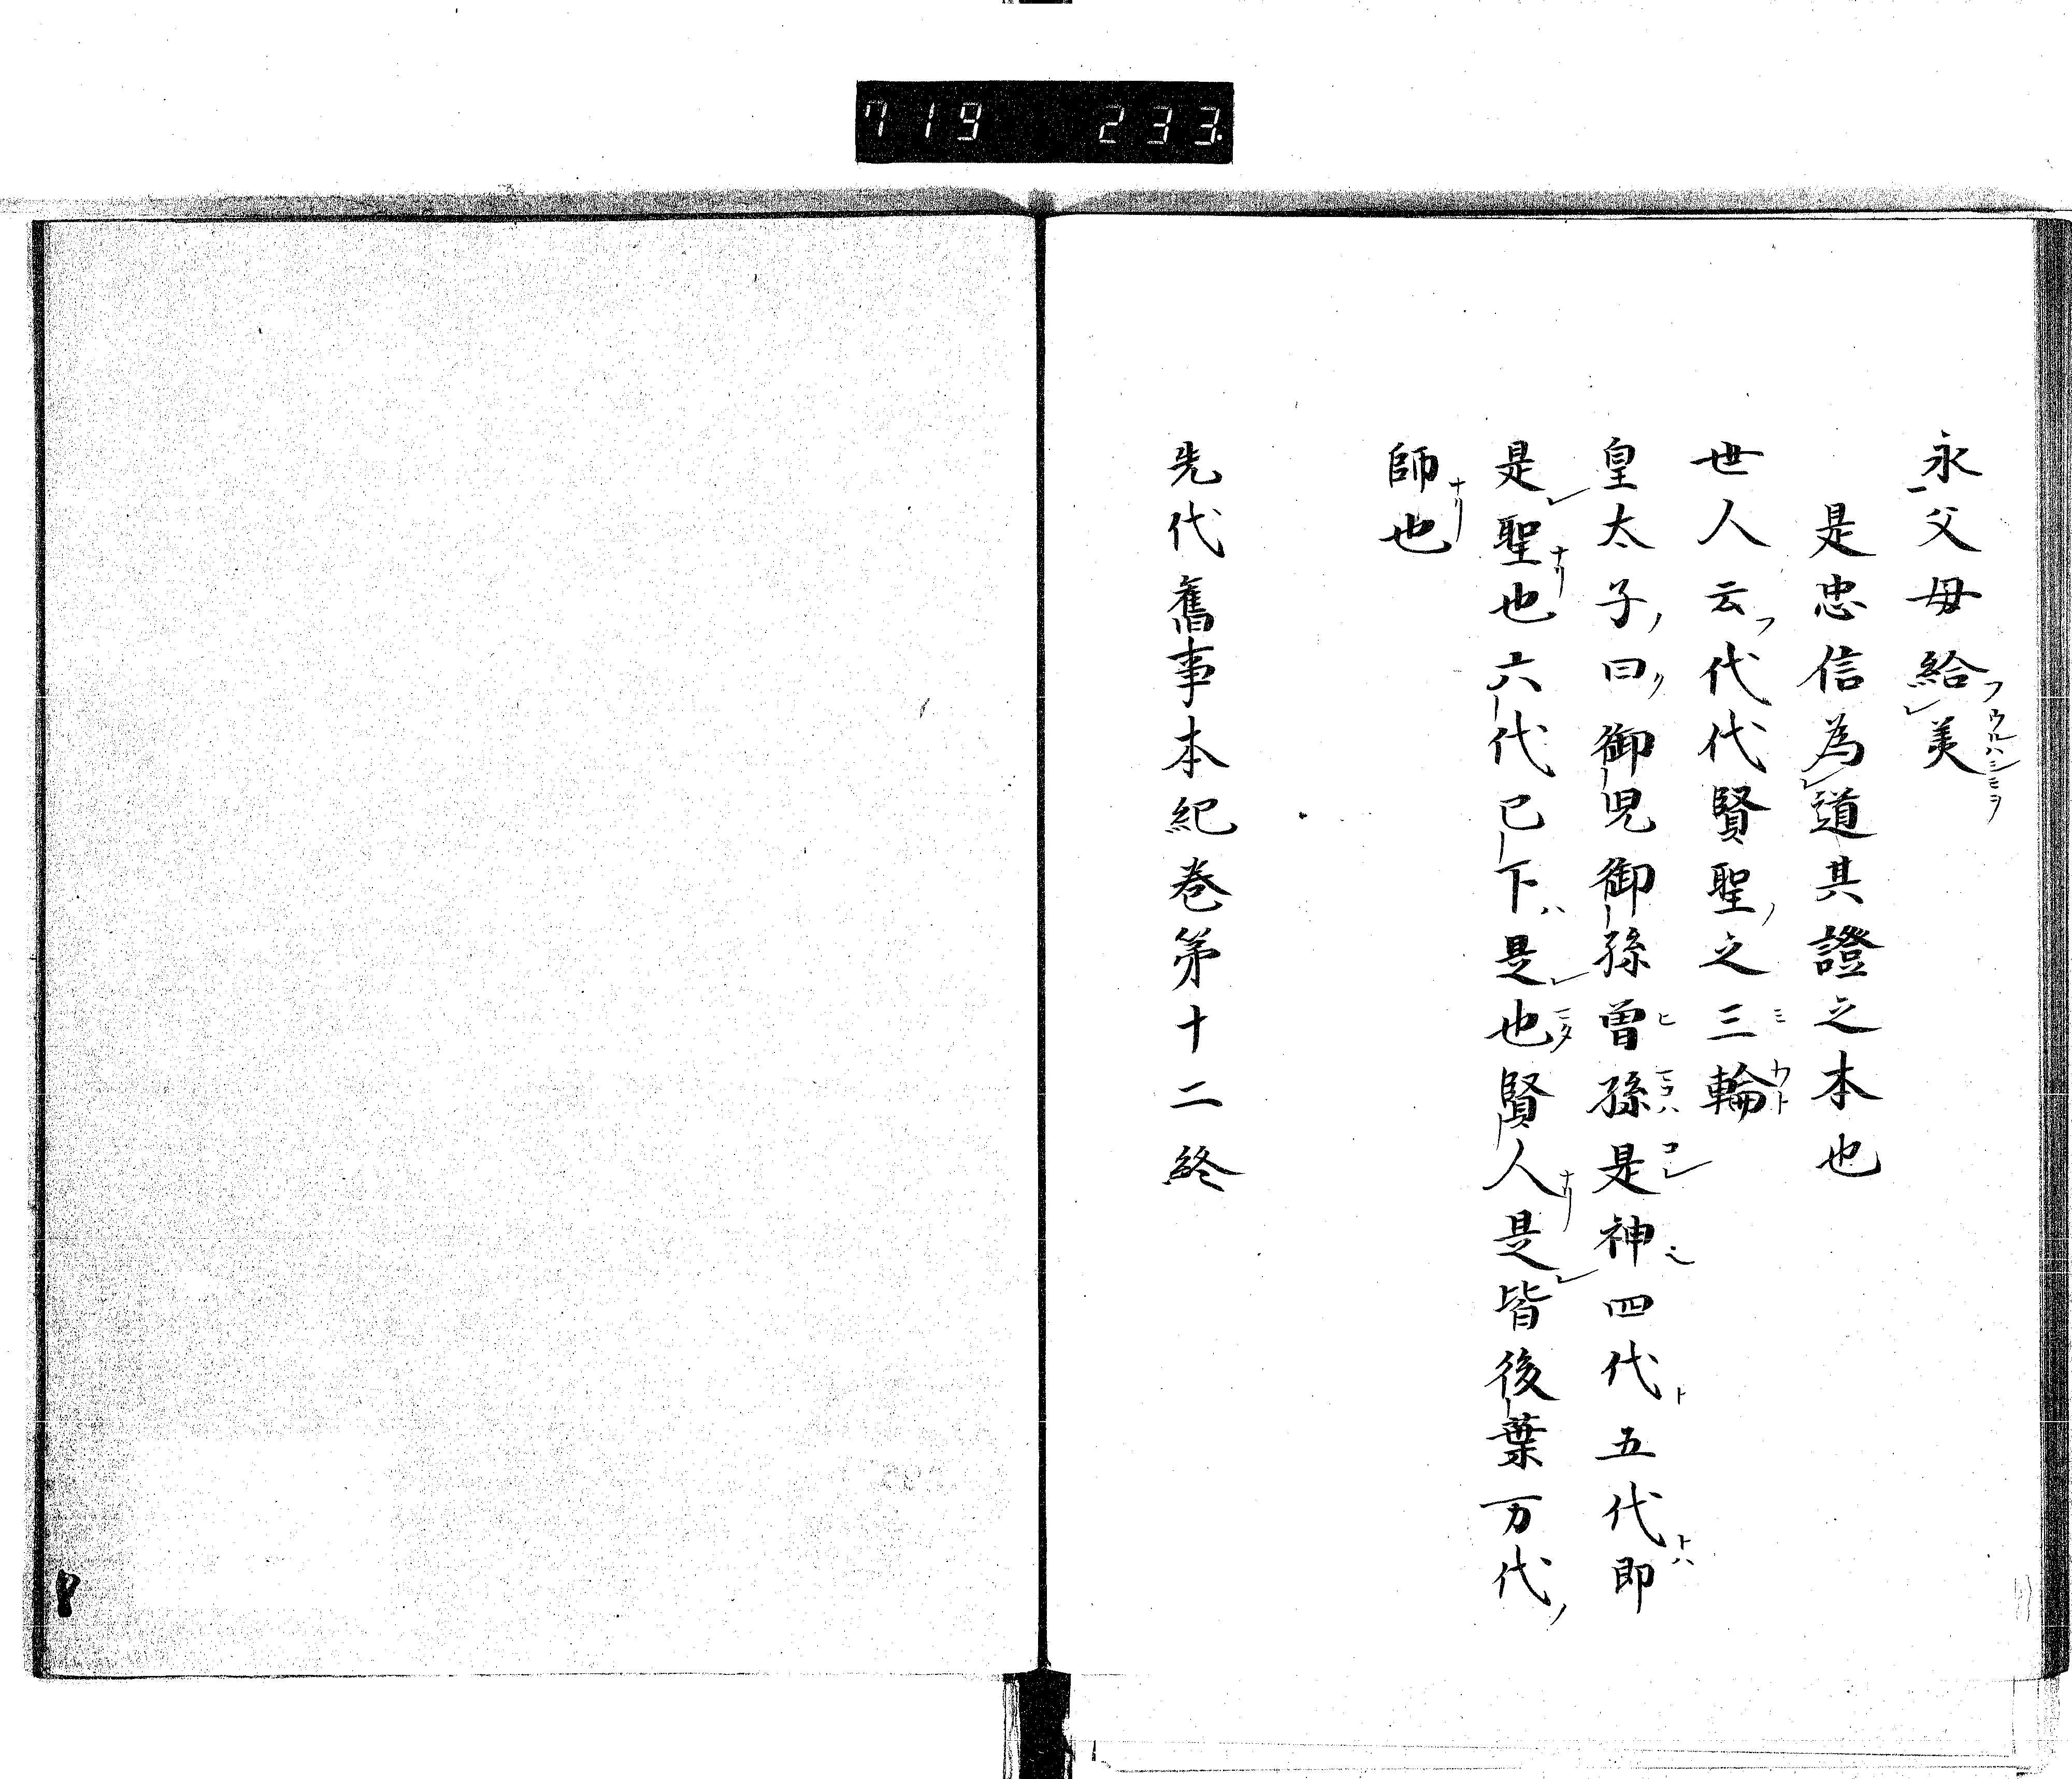 719 233.
永父母給美
是忠信為道其證之本也
世人云代代賢聖之三輪
皇太子曰御児御孫曽孫是神四代五代即
是聖也六代已下是也賢人是皆後葉万代
師也
先代舊事本紀巻第十二終